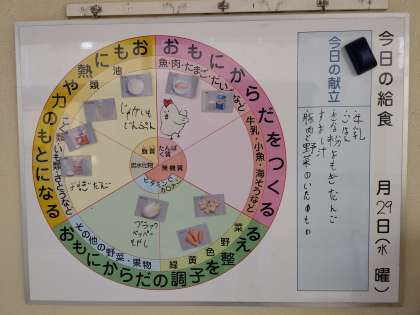 今日の給食
月29日(水曜)
今日の献立
牛乳
ごはん
すまし汁
豚肉と野菜の
おもにからだをつくる
おもにからだの調子を整える
おもに
熱や力のもとになる
魚・肉・たまご・だいずなど
牛乳・小魚・海そうなど
緑黄色野菜
その他の野菜・果物
こくるい・いも類・さとうなど
油類
脂質
たんぱく質
炭水化物
無機質
ビタミン
じゃがいも
でんぷん
ブラック
ペッパー
もやし